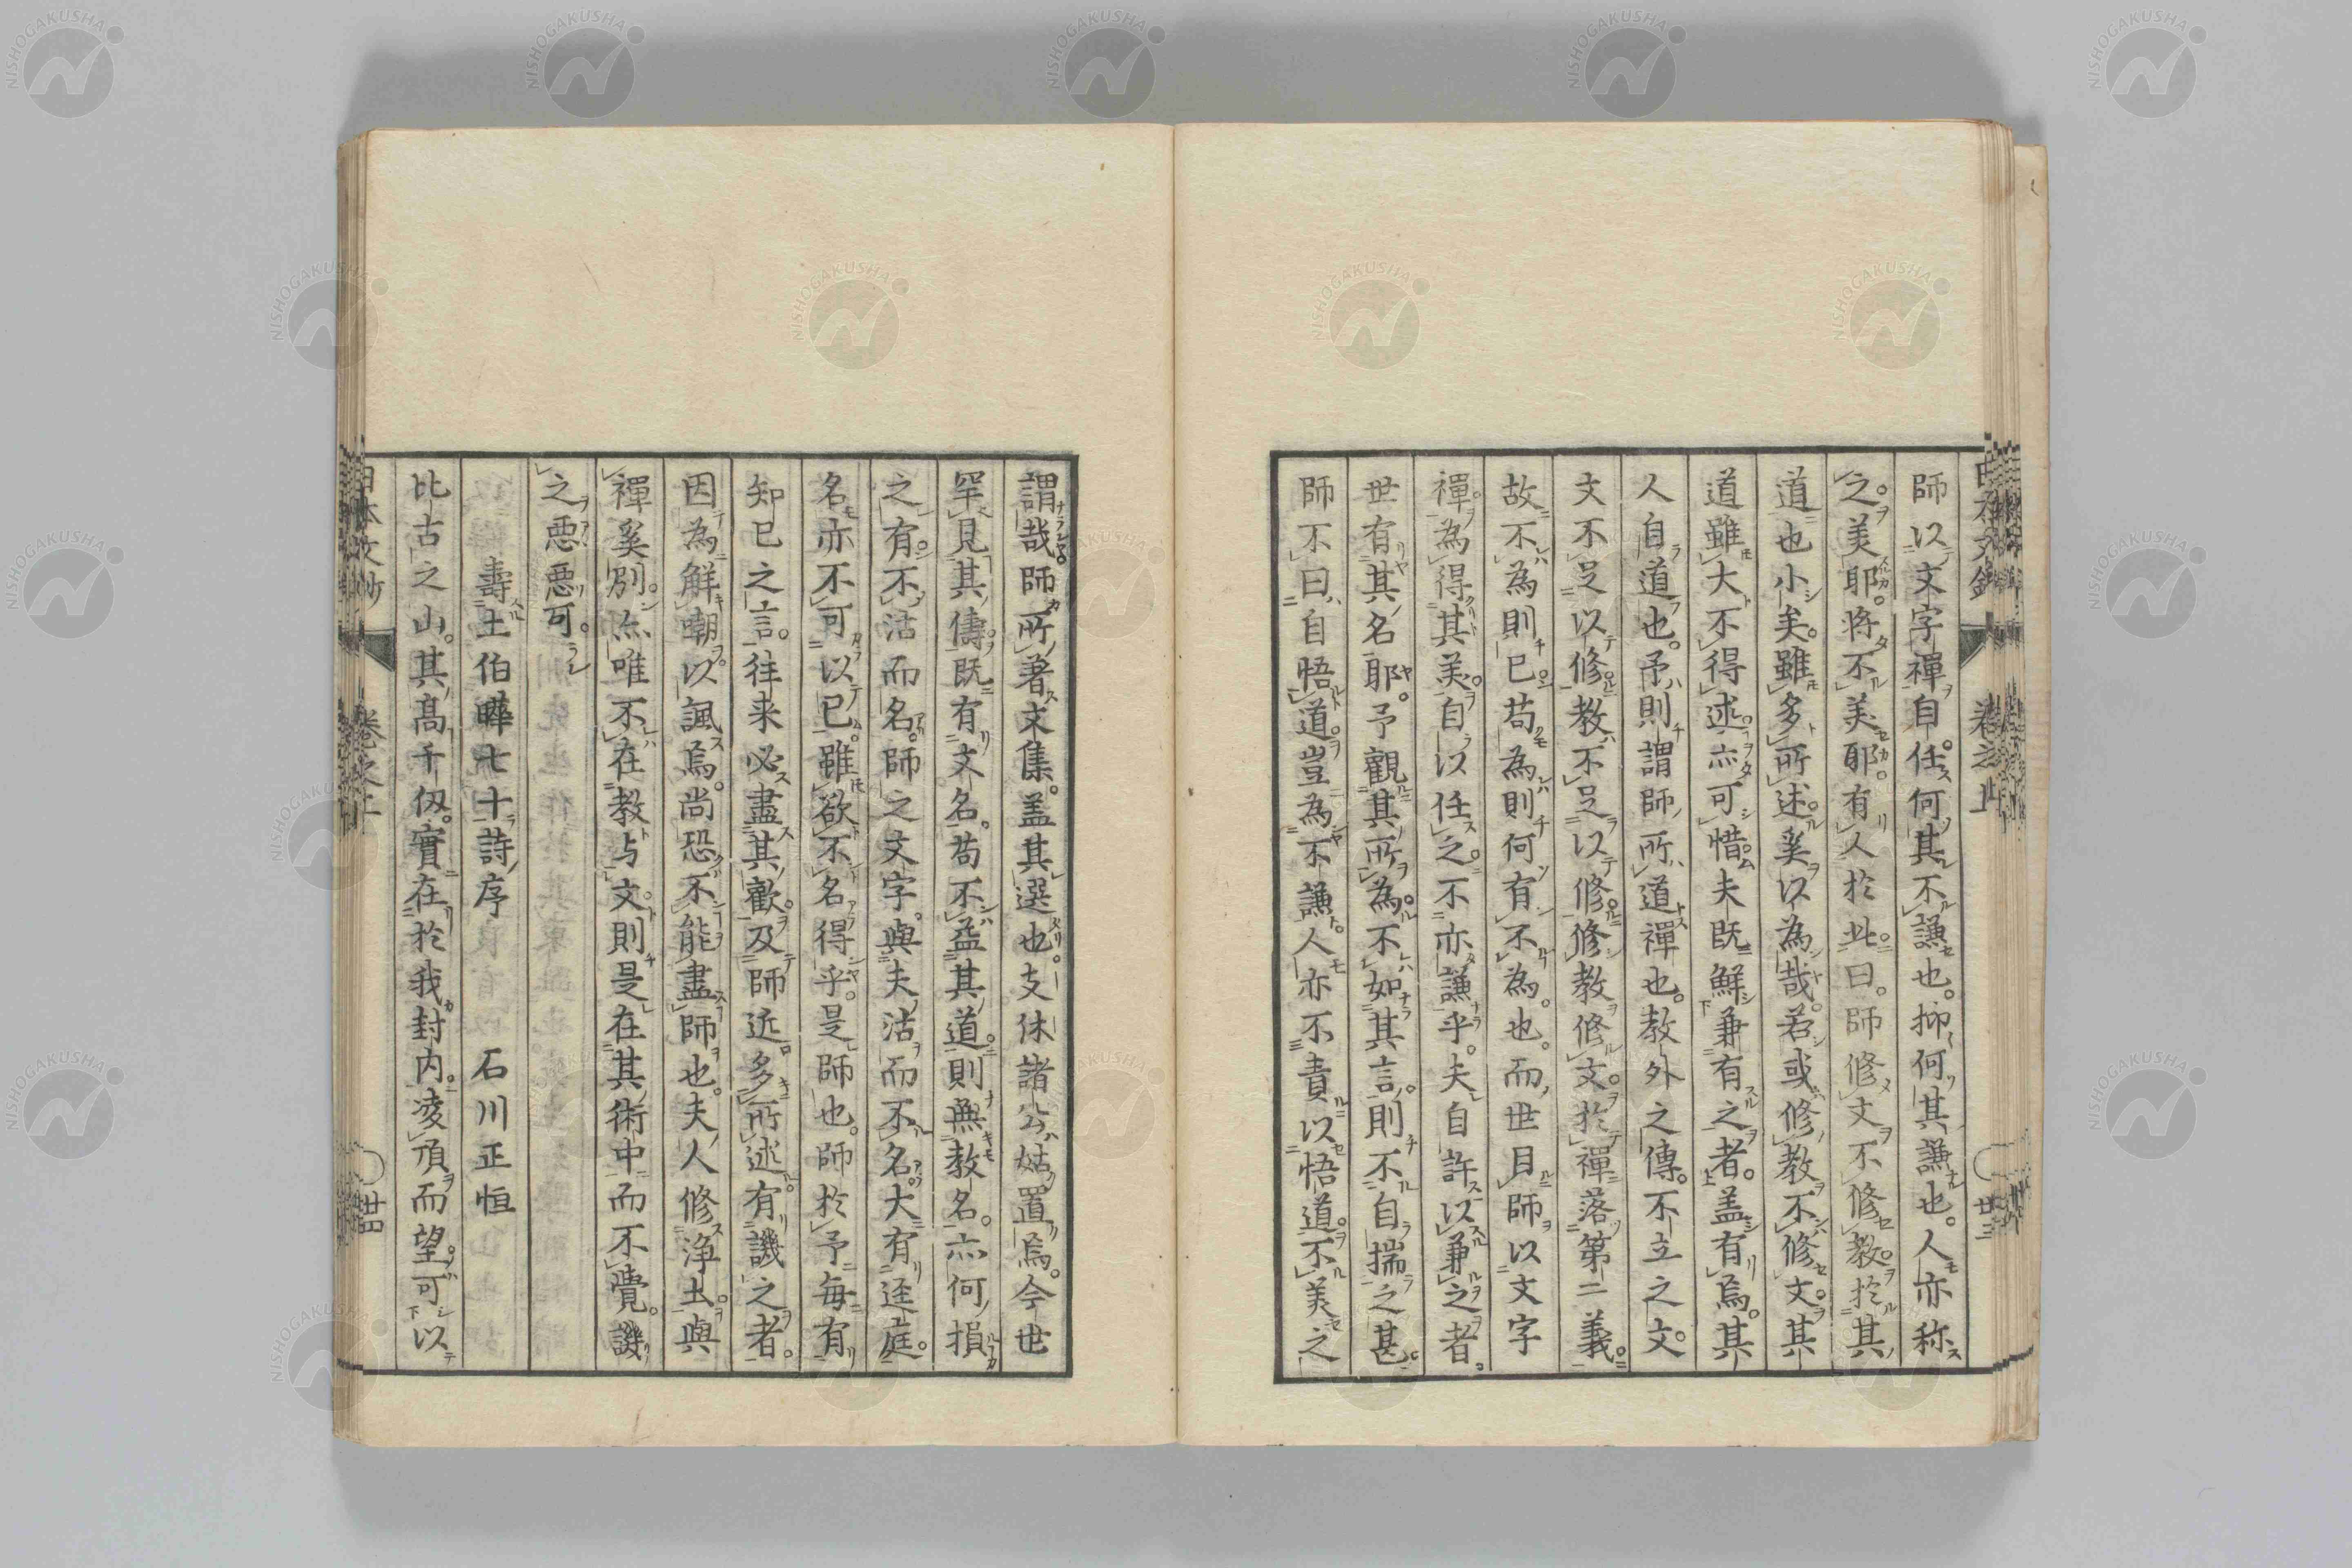 師以文字禪自任。何其不謙也。抑何其謙也。人亦称
之。美耶。將不美耶。有人於此。曰。師修文不修教。於其
道也小矣。雖多所述。奚以為哉。若或修教不修文。其
道雖大。不得述。亦可惜。夫既鮮兼有之者。盖有焉。其
人自道也。予則謂師所道禪也。教外之傳。不立之文。
文不足以修教。不足以修修教修文。於禪落第二義。
故不為則已。苟為則何有不為。也。而世目師以文字
禪。為得其美。自以任之。不亦謙乎。夫自許以兼之者。
世有其名耶。予觀其所為。不如其言。則不自揣之甚。
師不曰自悟道。豈為不謙。人亦不責以悟道。不美之
謂哉。師所著文集。盖其選也。支休諸公姑置焉。今世
罕見其儔。既有文名。苟不益其道。則無教名。亦何損
之有。不沽而名。師之文字。與夫沽而不名。大有逕庭。
名亦不可以已。雖欲不名得乎。是師也。師於予毎有
知己之言。往来必盡其歡。及師近多所述。有譏之者。
因為解嘲。以諷焉。尚恐不能盡師也。夫人修淨土。與
禪奚別。亦唯不在教与文。則是在其術中而不覺。譏
之惡惡可。
壽土伯曄七十詩序　石川正恒
比古之山。其高千仭。實在於我封内。凌頂而望。可以
日本文抄　卷之上　廿四
卷之上　廿三